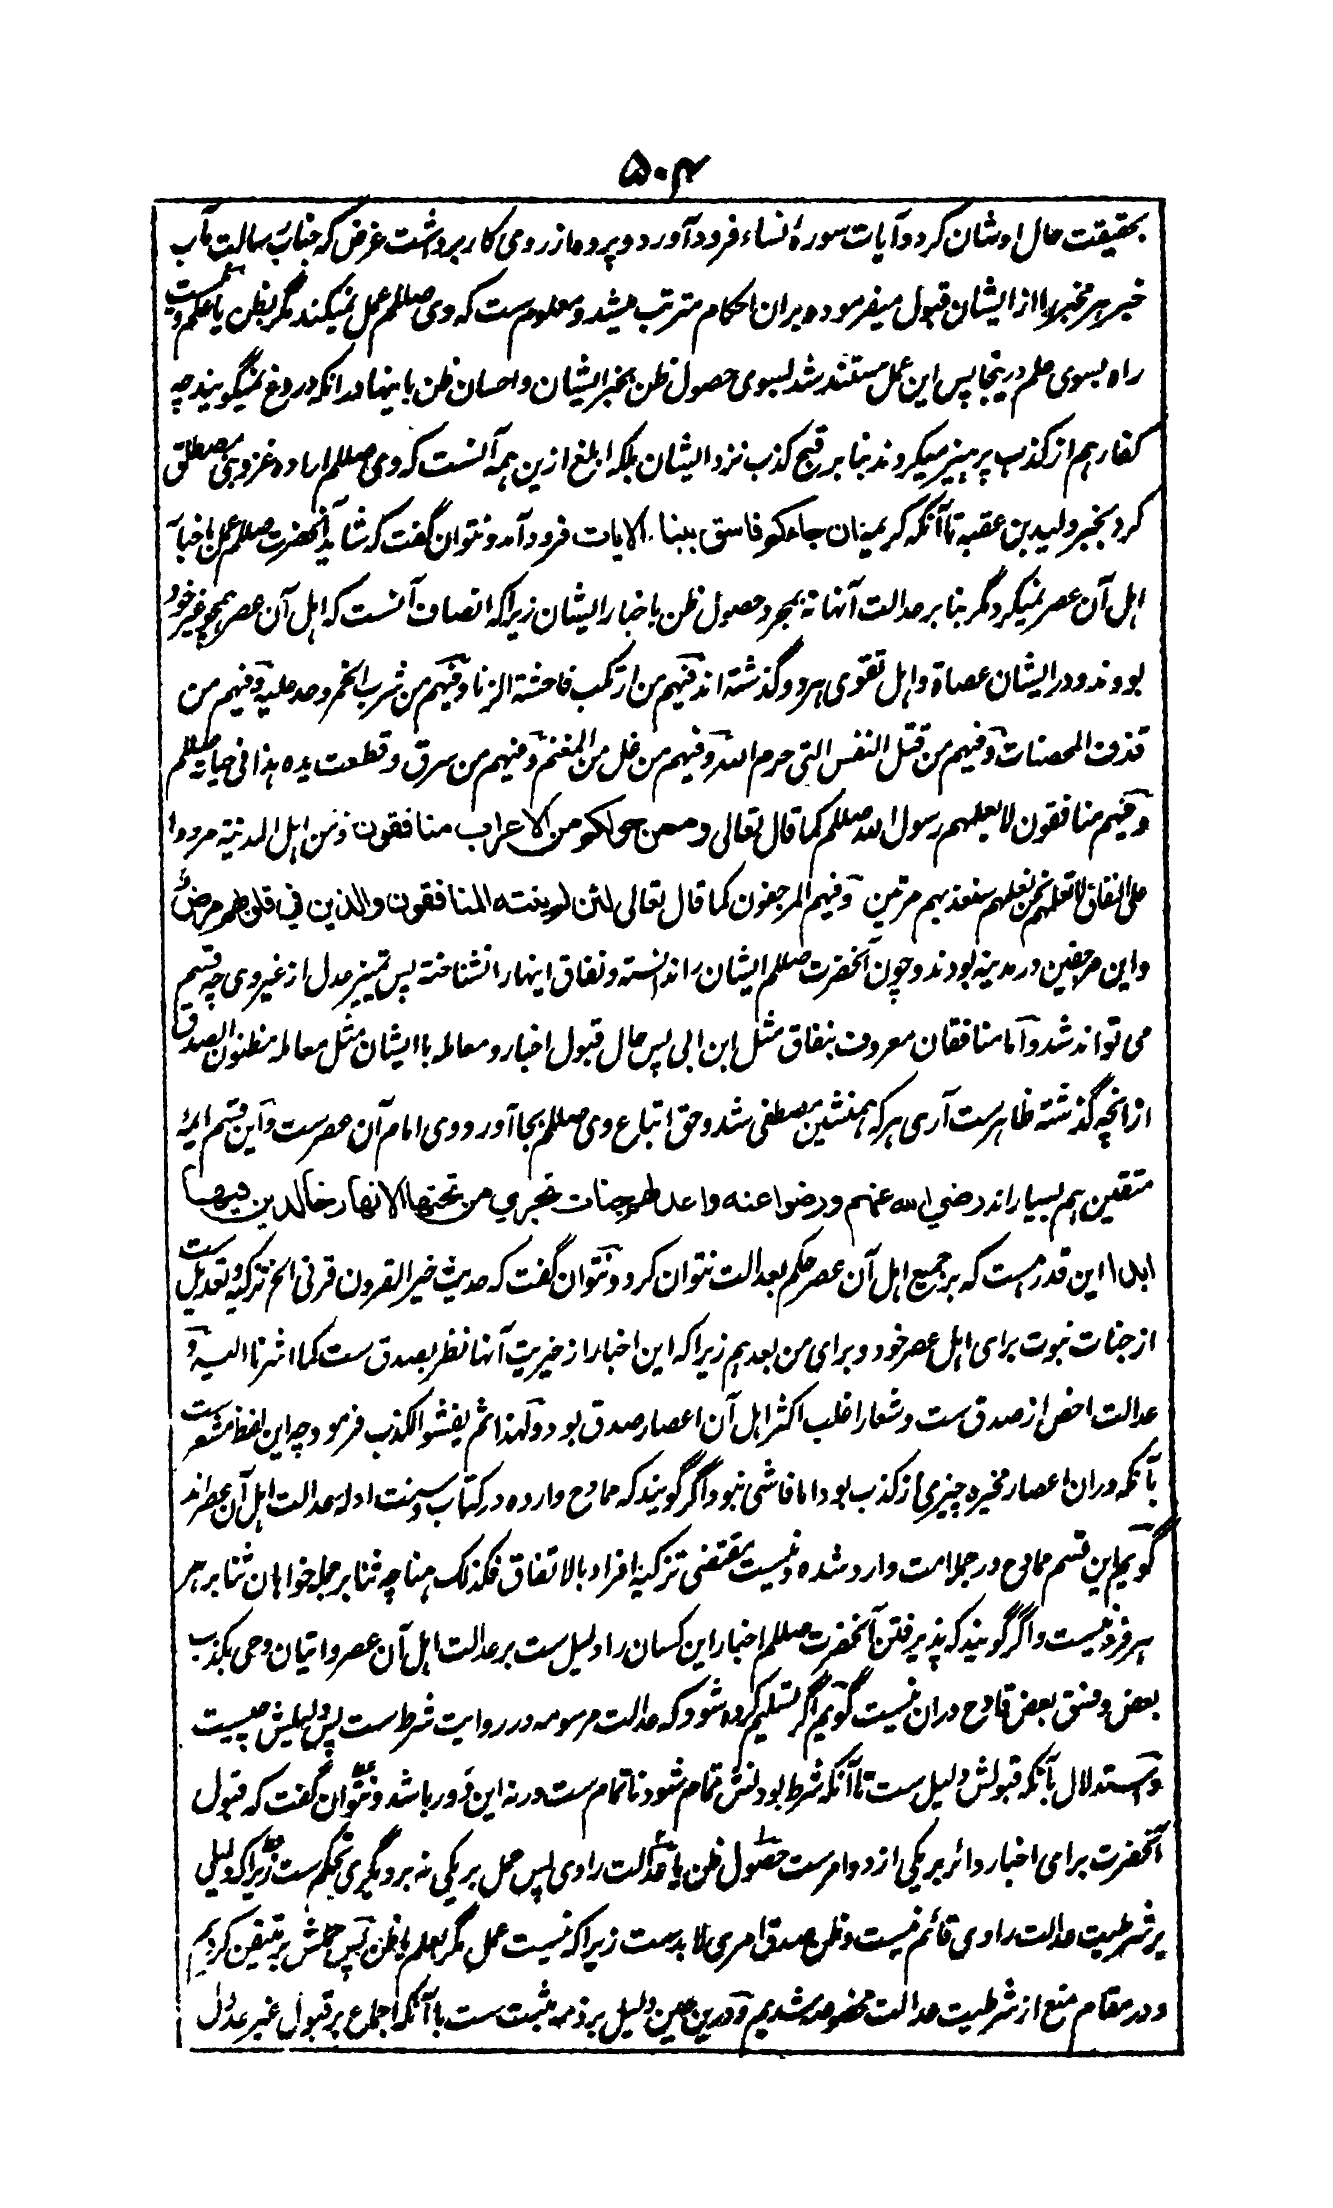 ۵۰۴
بحقیقت حال اوشان کرد و آیات سورهٔ نساء فرود آورد و پرده از روی کار برداشت غرض که جناب رسالت مآب
خبر هر مخبر را از ایشان قبول میفرمود و بران احکام مترتب میشد و معلوم ست که وی صللم عمل نمیکند مگر بظن یا علم و نیست
راه بسوی علم درینجا پس این عمل مستند شد بسوی حصول ظن بخبر ایشان و احسان ظن باینها مدانکه دروغ نمیگویند چه
کفار هم از کذب پرهیز میکردند بنا بر قبح کذب نزد ایشان بلکه ابلغ ازین همه آنست که وی صللم اراده غزو بنی مصطلق
کرد بخبر ولید بن عقبه تا آنکه کریمه ان جاءکم فاسق بنبا الایات فرود آمد و نتوان گفت که شاید آنحضرت صللم عمل باخبار
اهل آن عصر نمیکرد مگر بنا بر عدالت آنها نه بمجرد حصول ظن باخبار ایشان زیرا که انصاف آنست که اهل آن عصر همچو غیر خود
بودند و در ایشان عصاة و اهل تقوی هر دو گذشته اند فمنهم من ارتکب فاحشة الزنا و فیهم من شرب الخمر و حد علیه و فیهم من
قذف المحصنات و فیهم من قتل النفس التی حرم الله و فیهم من غل من المغنم و فیهم من سرق و قطعت یده هذا فی حیاته صللم
و فیهم منافقون لا یعلمهم رسول الله صللم کما قال تعالی و ممن حولکم من الاعراب منافقون و من اهل المدینة مردوا
علی النفاق لا تعلمهم نحن نعلمهم سنعذبهم مرتین و فیهم المرجفون کما قال تعالی لئن لم ینته المنافقون والذین في قلوبهم مرضٌ
و این مرجفین در مدینه بودند و چون آنحضرت صللم ایشان را ندانسته و نفاق اینها را نشناخته پس تمییز عدل از غیر وی چه قسم
می تواند شد و اما منافقان معروف بنفاق مثل ابن ابی پس حال قبول اخبار و معامله با ایشان مثل معامله مظنون الصدق
ازانچه گذشته ظاهرست آری هر که همنشین مصطفی شد و حق اتباع وی صللم بجا آورد وی امام آن عصرست و این قسم ائمه
متقین هم بسیار اند رضي الله عنهم ورضوا عنه واعد لهم جنات تجري من تحتها الانهار خالدين فيها
ابدا این قدر هست که بر جمیع اهل آن عصر حکم بعدالت نتوان کرد و نتوان گفت که حدیث خیر القرون قرنی الخ تزکیه و تعدیل ست
از جناب نبوت برای اهل عصر خود و برای من بعد هم زیرا که این اخبار از خیریت آنها نظر بصدق ست کما اشرنا الیه و
عدالت اخص از صدق ست و شعار اغلب اکثر اهل آن اعصار صدق بود و لهذا ثم یفشو الکذب فرمود چه این لفظ مشعرست
بآنکه دران اعصار مخیره چیزی از کذب بود اما فاشی نبود اگر گویند که ممادح وارده در کتاب و سنت ادله عدالت اهل آن عصر اند
گویم این قسم ممادح در جمله امت وارد شده و نیست مقتضی تزکیه افراد بالاتفاق فکذلک هنا چه ثنا بر جمله خواهان ثنا بر هر
هر فرد نیست و اگر گویند که پذیرفتن آنحضرت صللم اخبار این کسان را دلیل ست بر عدالت اهل آن عصر و اتیان وحی بکذب
بعض و فسق بعض قادح دران نیست گویم اگر تسلیم کرده شود که عدالت مرسومه در روایت شرط ست پس دلیلش چیست
و استدلال بآنکه قبولش دلیل ست تا آنکه شرط بودنش تمام شود ناتمام ست ورنه این دور باشد و نتوان گفت که قبول
آنحضرت برای اخبار دائر بر یکی از دو امرست حصول ظن یا عدالت راوی پس حمل بر یکی نه بر دیگری تحکم ست زیرا که دلیل
بر شرطیت عدالت راوی قائم نیست و ظن صدق امری لابدست زیرا که نیست عمل مگر بعلم یا ظن پس حملش بر متیقن کردیم
و در مقام منع از شرطیت عدالت مخصوصه شدیم و درین حین دلیل بر ذمه مثبت ست با آنکه اجماع بر قبول غیر عدول